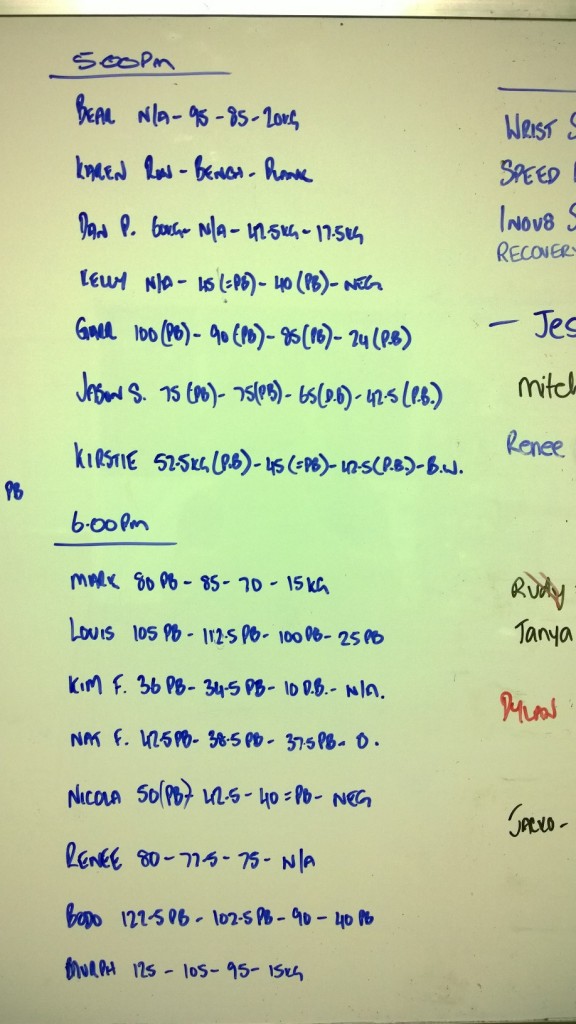 5:00pm
BEAR N/A - 95 - 85 - 20KG
KAREN RUN - BENCH - PLANK
DAN P. 60KG - N/A - 42.5KG - 17.5KG
KELLY N/A - 45 (=PB) - 40 (PB) - NEG
100 (PB) - 90 (PB) - 85 (PB) - 24 (P.B)
JASON S. 75 (PB) - 75 (PB) - 65 (P.B) - 42.5 (P.B.)
KIRSTIE 52.5KG (P.B) - 45 (=PB) - 42.5 (P.B.) - B.W.
PB
6.00pm
MARK 80 PB - 85 - 70 - 15KG
LOUIS 105 PB - 112.5 PB - 100 PB - 25 PB
KIM F. 36 PB - 34.5 PB - 10 P.B. - N/A.
NAT F. 42.5 PB - 38.5 PB - 37.5 PB - 0.
NICOLA 50 (PB) - 42.5 - 40 = PB - NEG
RENEE 80 - 77.5 - 75 - N/A
BODO 122.5 PB - 102.5 PB - 90 - 40 PB
MURPH 125 - 105 - 95 - 15KG
WRIST S
SPEED
INOV8 S
RECOVERY
- Jes
mitch
Renee
Rudy
Tanya
DYLAN
JARKO -